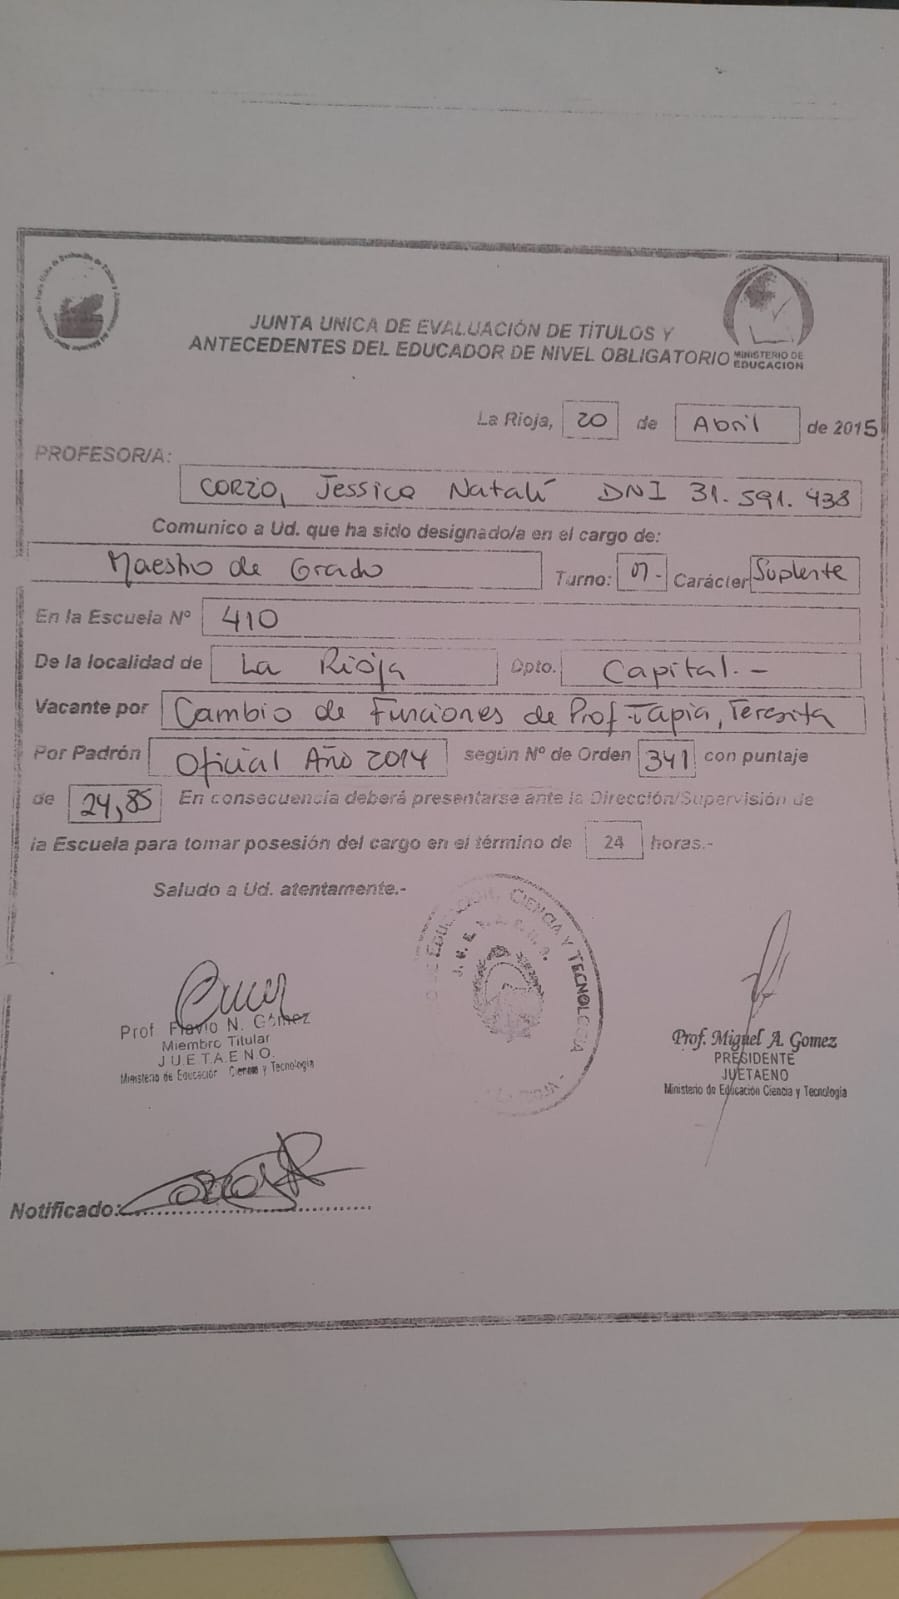 JUNTA UNICA DE EVALUACIÓN DE TÍTULOS Y
ANTECEDENTES DEL EDUCADOR DE NIVEL OBLIGATORIO
MINISTERIO DE
EDUCACION
La Rioja, 20 de Abril de 2015
PROFESOR/A:
CORZO, Jessica Natalí DNI 31.591.438
Comunico a Ud. que ha sido designado/a en el cargo de:
Maestro de Grado Turno: M.- Carácter Suplente
En la Escuela Nº 410
De la localidad de La Rioja Dpto. Capital.-
Vacante por Cambio de Funciones de Prof. Tapia, Teresita
Por Padrón Oficial Año 2014 según Nº de Orden 341 con puntaje
de 24,85 En consecuencia deberá presentarse ante la Dirección/Supervisión de
la Escuela para tomar posesión del cargo en el término de 24 horas.-
Saludo a Ud. atentamente.-
EDUCACION, CIENCIA Y TECNOLOGIA
Prof. Flavio N. Gómez
Miembro Titular
J.U.E.T.A.E.N.O.
Ministerio de Educación Ciencia y Tecnología
Prof. Miguel A. Gomez
PRESIDENTE
JUETAENO
Ministerio de Educación Ciencia y Tecnología
Notificado: